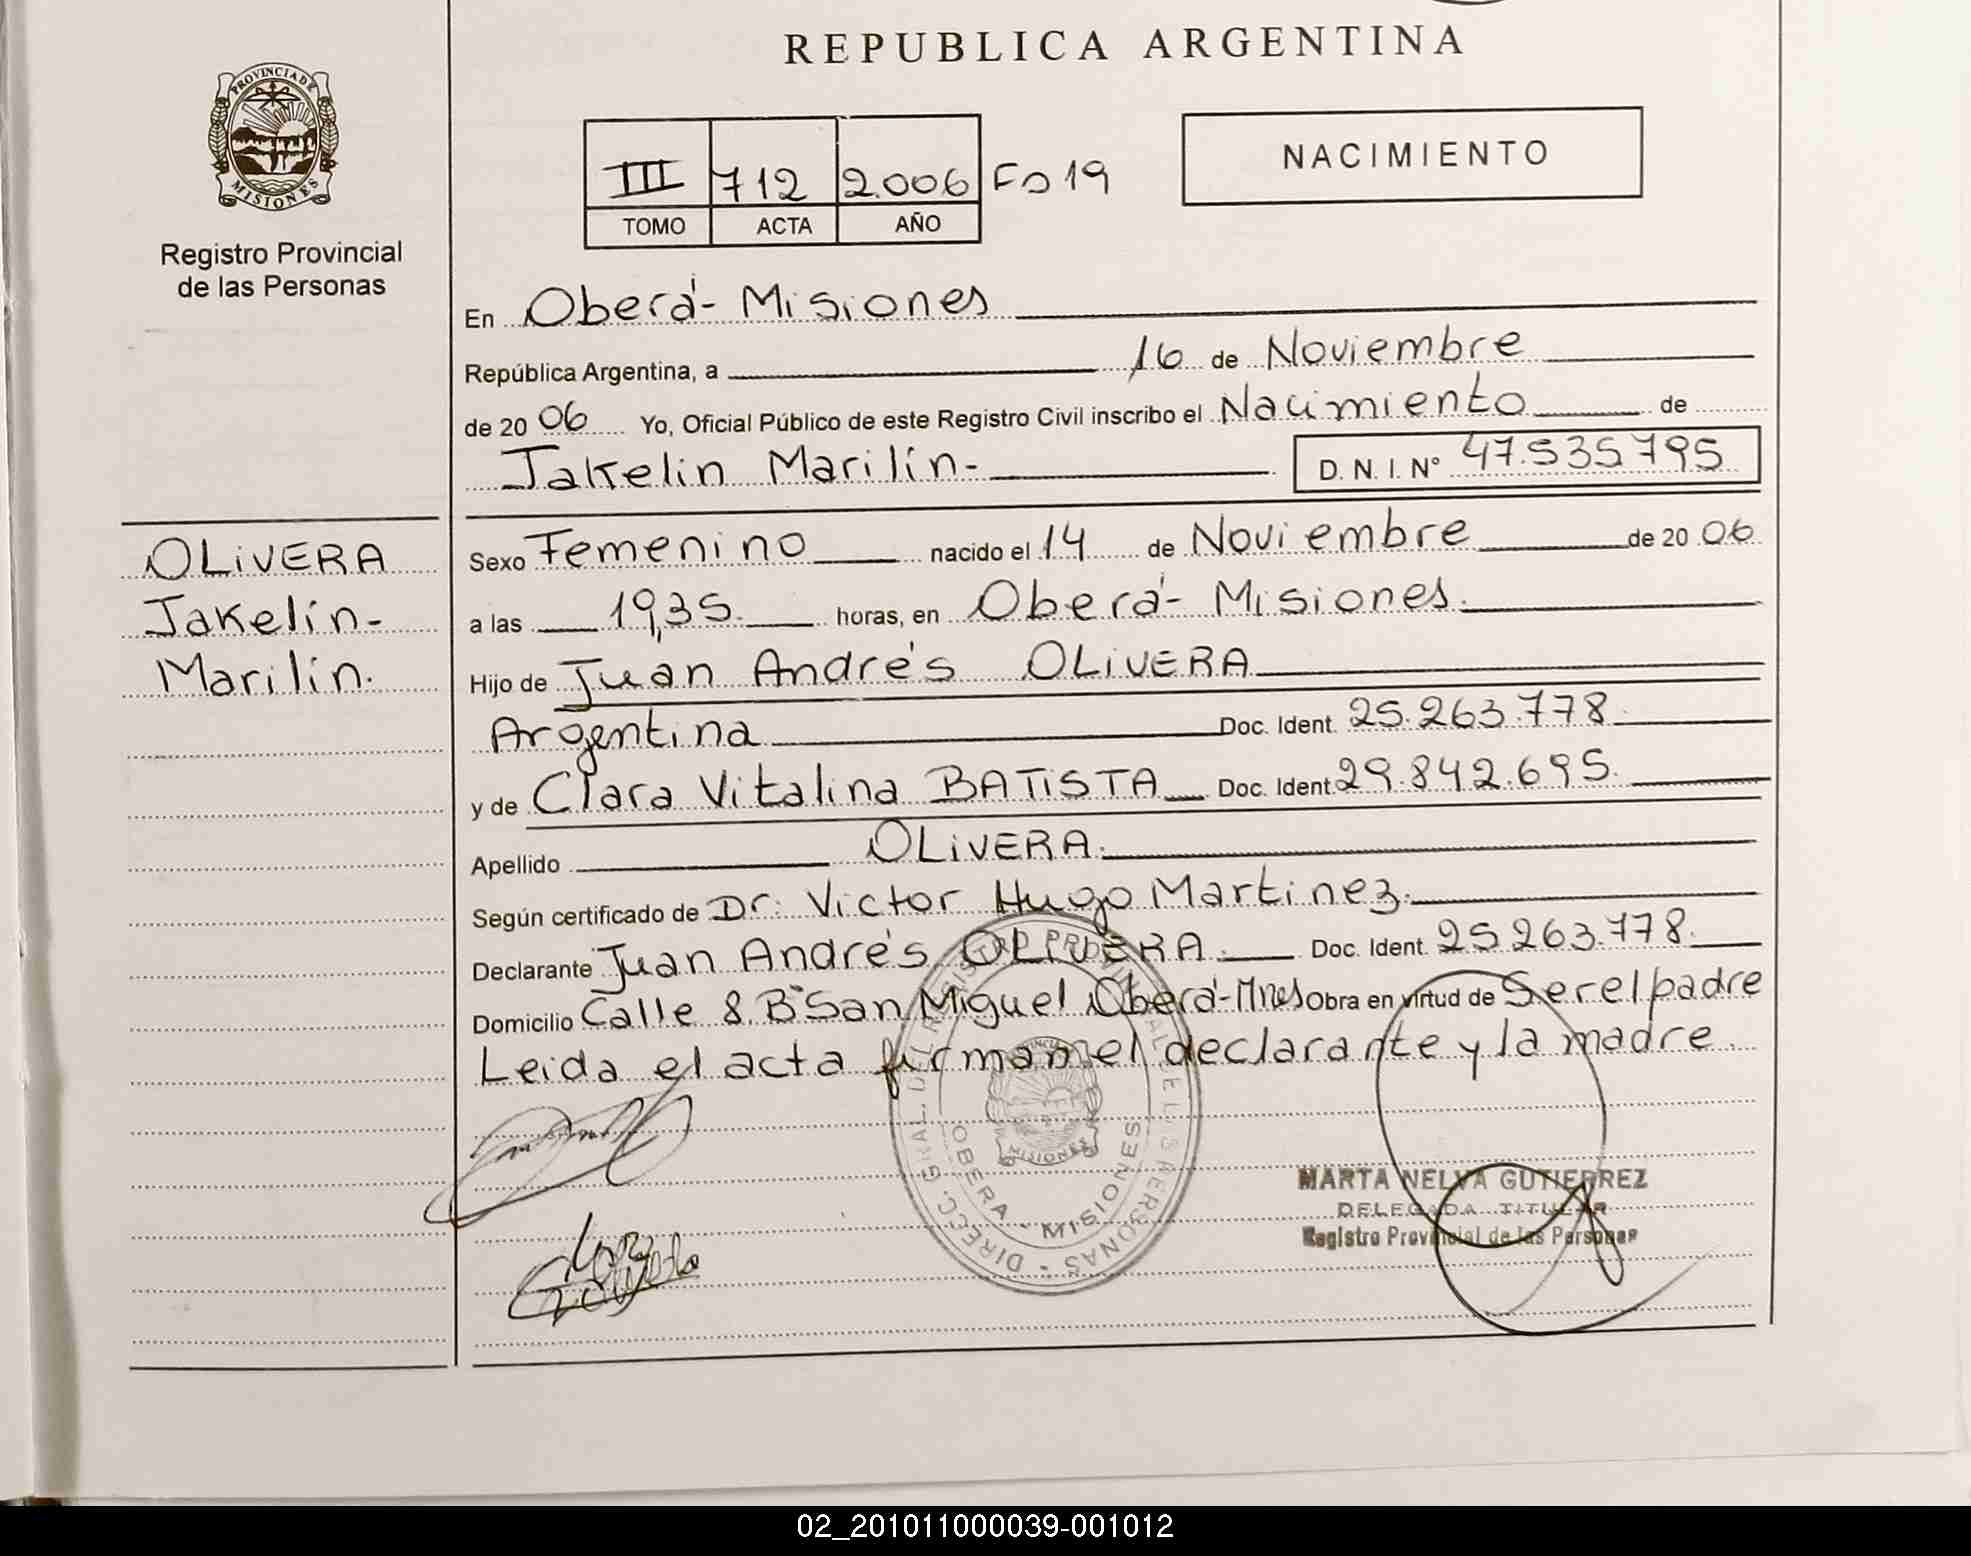 REPUBLICA ARGENTINA
PROVINCIA DE MISIONES
Registro Provincial
de las Personas
NACIMIENTO
III 712 2.006 Fo 19
TOMO ACTA AÑO
En Oberá - Misiones
República Argentina, a 16 de Noviembre
de 20 06 Yo, Oficial Público de este Registro Civil inscribo el Nacimiento de
Jakelin Marilín- D. N. I. N° 47.535795
OLIVERA
Jakelín-
Marilín.
Sexo Femenino nacido el 14 de Noviembre de 20 06
a las 19,35. horas, en Oberá - Misiones.
Hijo de Juan Andrés OLIVERA
Argentina Doc. Ident. 25.263.778.
y de Clara Vitalina BATISTA Doc. Ident 29.842.695.
Apellido OLIVERA.
Según certificado de Dr. Victor Hugo Martinez.
Declarante Juan Andrés OLIVERA. Doc. Ident. 25263.778.
Domicilio Calle 8. B° San Miguel Oberá-Mnes Obra en virtud de Ser el padre
Leida el acta firman el declarante y la madre.
DIRECC. GRAL. DEL REGISTRO PROVINCIAL DE LAS PERSONAS
OBERA - MISIONES
MISIONES
MARTA NELVA GUTIERREZ
DELEGADA TITULAR
Registro Provincial de las Personas
02_201011000039-001012